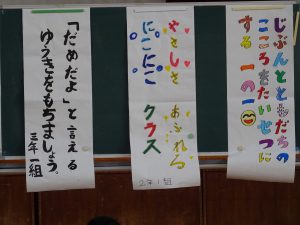 じぶんとともだちの
こころをたいせつに
する 一の一
やさしさ あふれる
にこにこ クラス
2年1組
「だめだよ」と言える
ゆうきをもちましょう。
三年一組